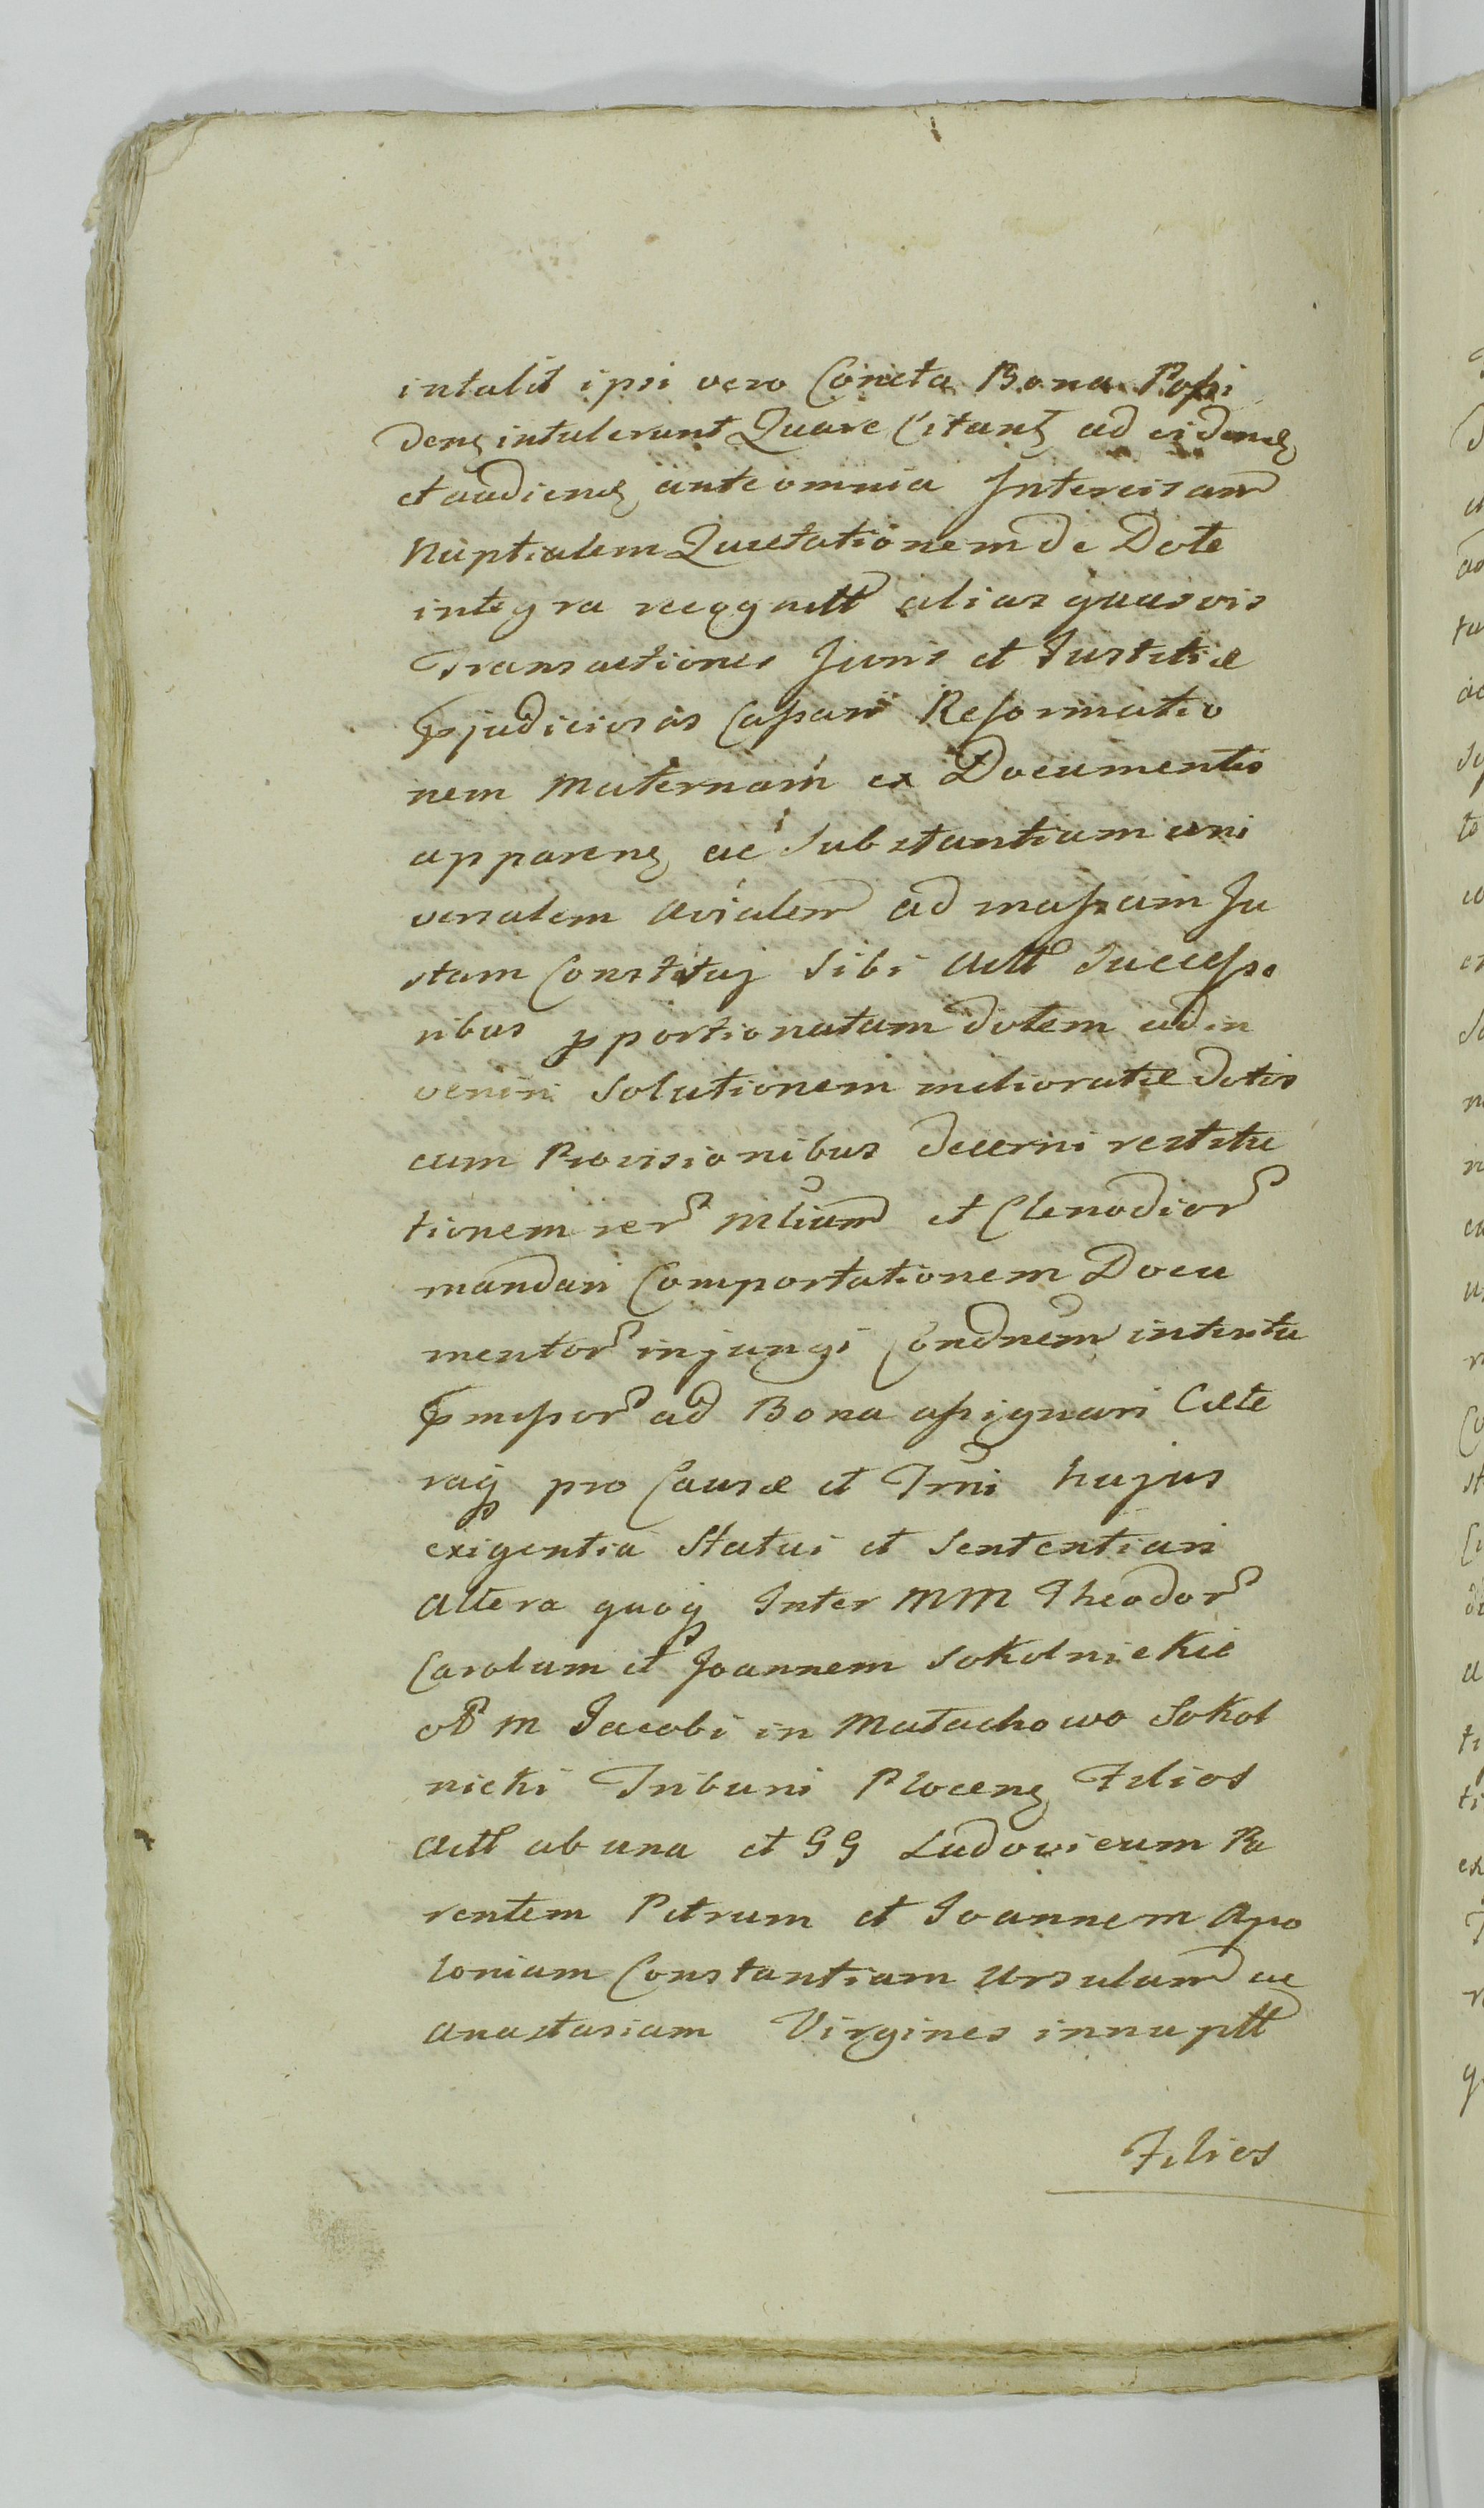 intulit ipsi vero Concta Bona Possi
dens intulerunt Quare Citant ad viden
et audien ante omnia Intercisam
Nuptialem Quietationem de Dote
integra recognitt alias quasvis
Transactiones Juris et Justitiæ
pjudiciosas Cassari Reformatio
nem Maternam ex Documentis
apparens ac Substantiam uni
versalem Avialem ad massam Ju
stam Constitui Sibi Actt Successo
ribus pportionatam dotem adin
veniri Solutionem melioratæ dotis
cum Provisionibus decerni restitu
tionem rer Mlium et Clenodior
mandari Comportationem Docu
mentor injungi Condnem intentu
pmissor ad Bona assignari Cæte
raq pro Causæ et Trni hujus
exigentia Statui et Sententiari
Altera quoq Inter MM Theodor
Carolum et Joannem Sokolnickie
olt M Jacobi in Małachowo Sokol
nicki Tribuni Plocens Filios
Actt ab una et GG Ludovicum Pa
rentem Petrum et Joannem Apo
loniam Constantiam Ursulam ac
Anastasiam Virgines innuptt
Filios